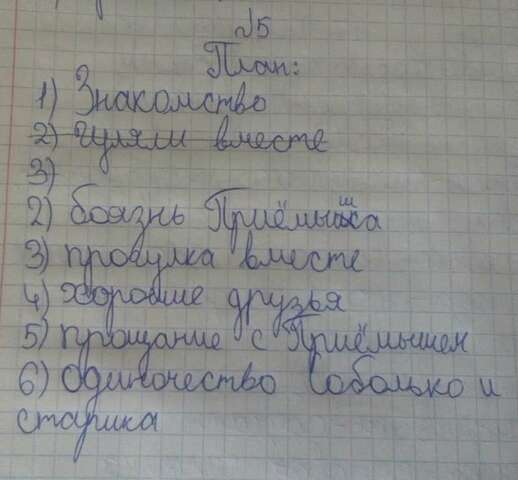 №5
План:
1) Знакомство
2) гуляли вместе
3)
2) боязнь Приёмыша
3) прогулка вместе
4) хорошие друзья
5) прощание с Приёмышем
6) одиночество Соболько и
старика